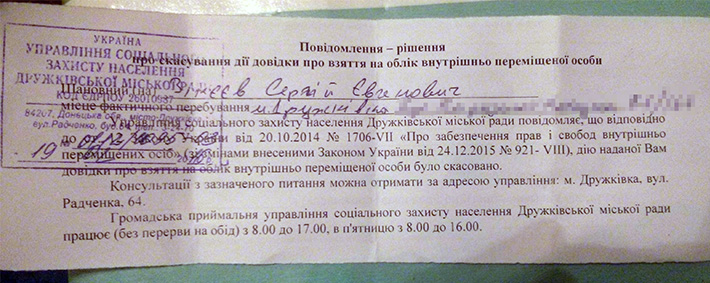 УКРАЇНА
УПРАВЛІННЯ СОЦІАЛЬНОГО
ЗАХИСТУ НАСЕЛЕННЯ
ДРУЖКІВСЬКОЇ МІСЬКОЇ РАДИ
КОД ЄДРПОУ 26010637
84207, Донецька обл.
вул.Радченко, буд.
19
Повідомлення – рішення
про скасування дії довідки про взяття на облік внутрішньо переміщеної особи
Шановний (на) Сергій Євгенович
місце фактичного перебування м. Дружківка
Управління соціального захисту населення Дружківської міської ради повідомляє, що відповідно
до України від 20.10.2014 № 1706-VII «Про забезпечення прав і свобод внутрішньо
переміщених осіб» (зі змінами внесеними Законом України від 24.12.2015 № 921- VIII), дію наданої Вам
довідки про взяття на облік внутрішньо переміщеної особи було скасовано.
Консультації з зазначеного питання можна отримати за адресою управління: м. Дружківка, вул.
Радченка, 64.
Громадська приймальня управління соціального захисту населення Дружківської міської ради
працює (без перерви на обід) з 8.00 до 17.00, в п'ятницю з 8.00 до 16.00.